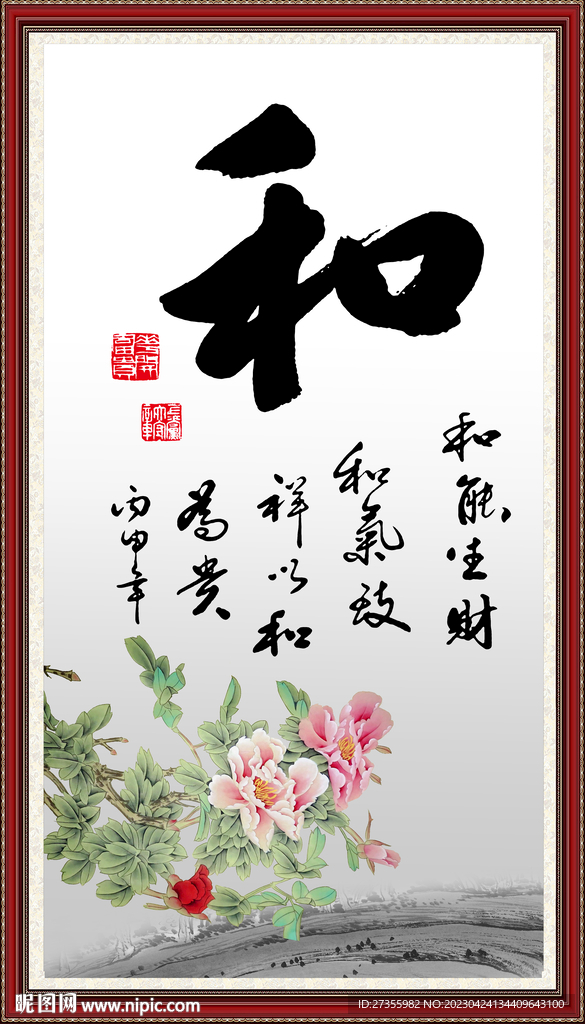 和
和能生财
和氣致
祥以和
為贵
丙申年
昵图网 www.nipic.com
ID:27355982 NO:20230424134409643100